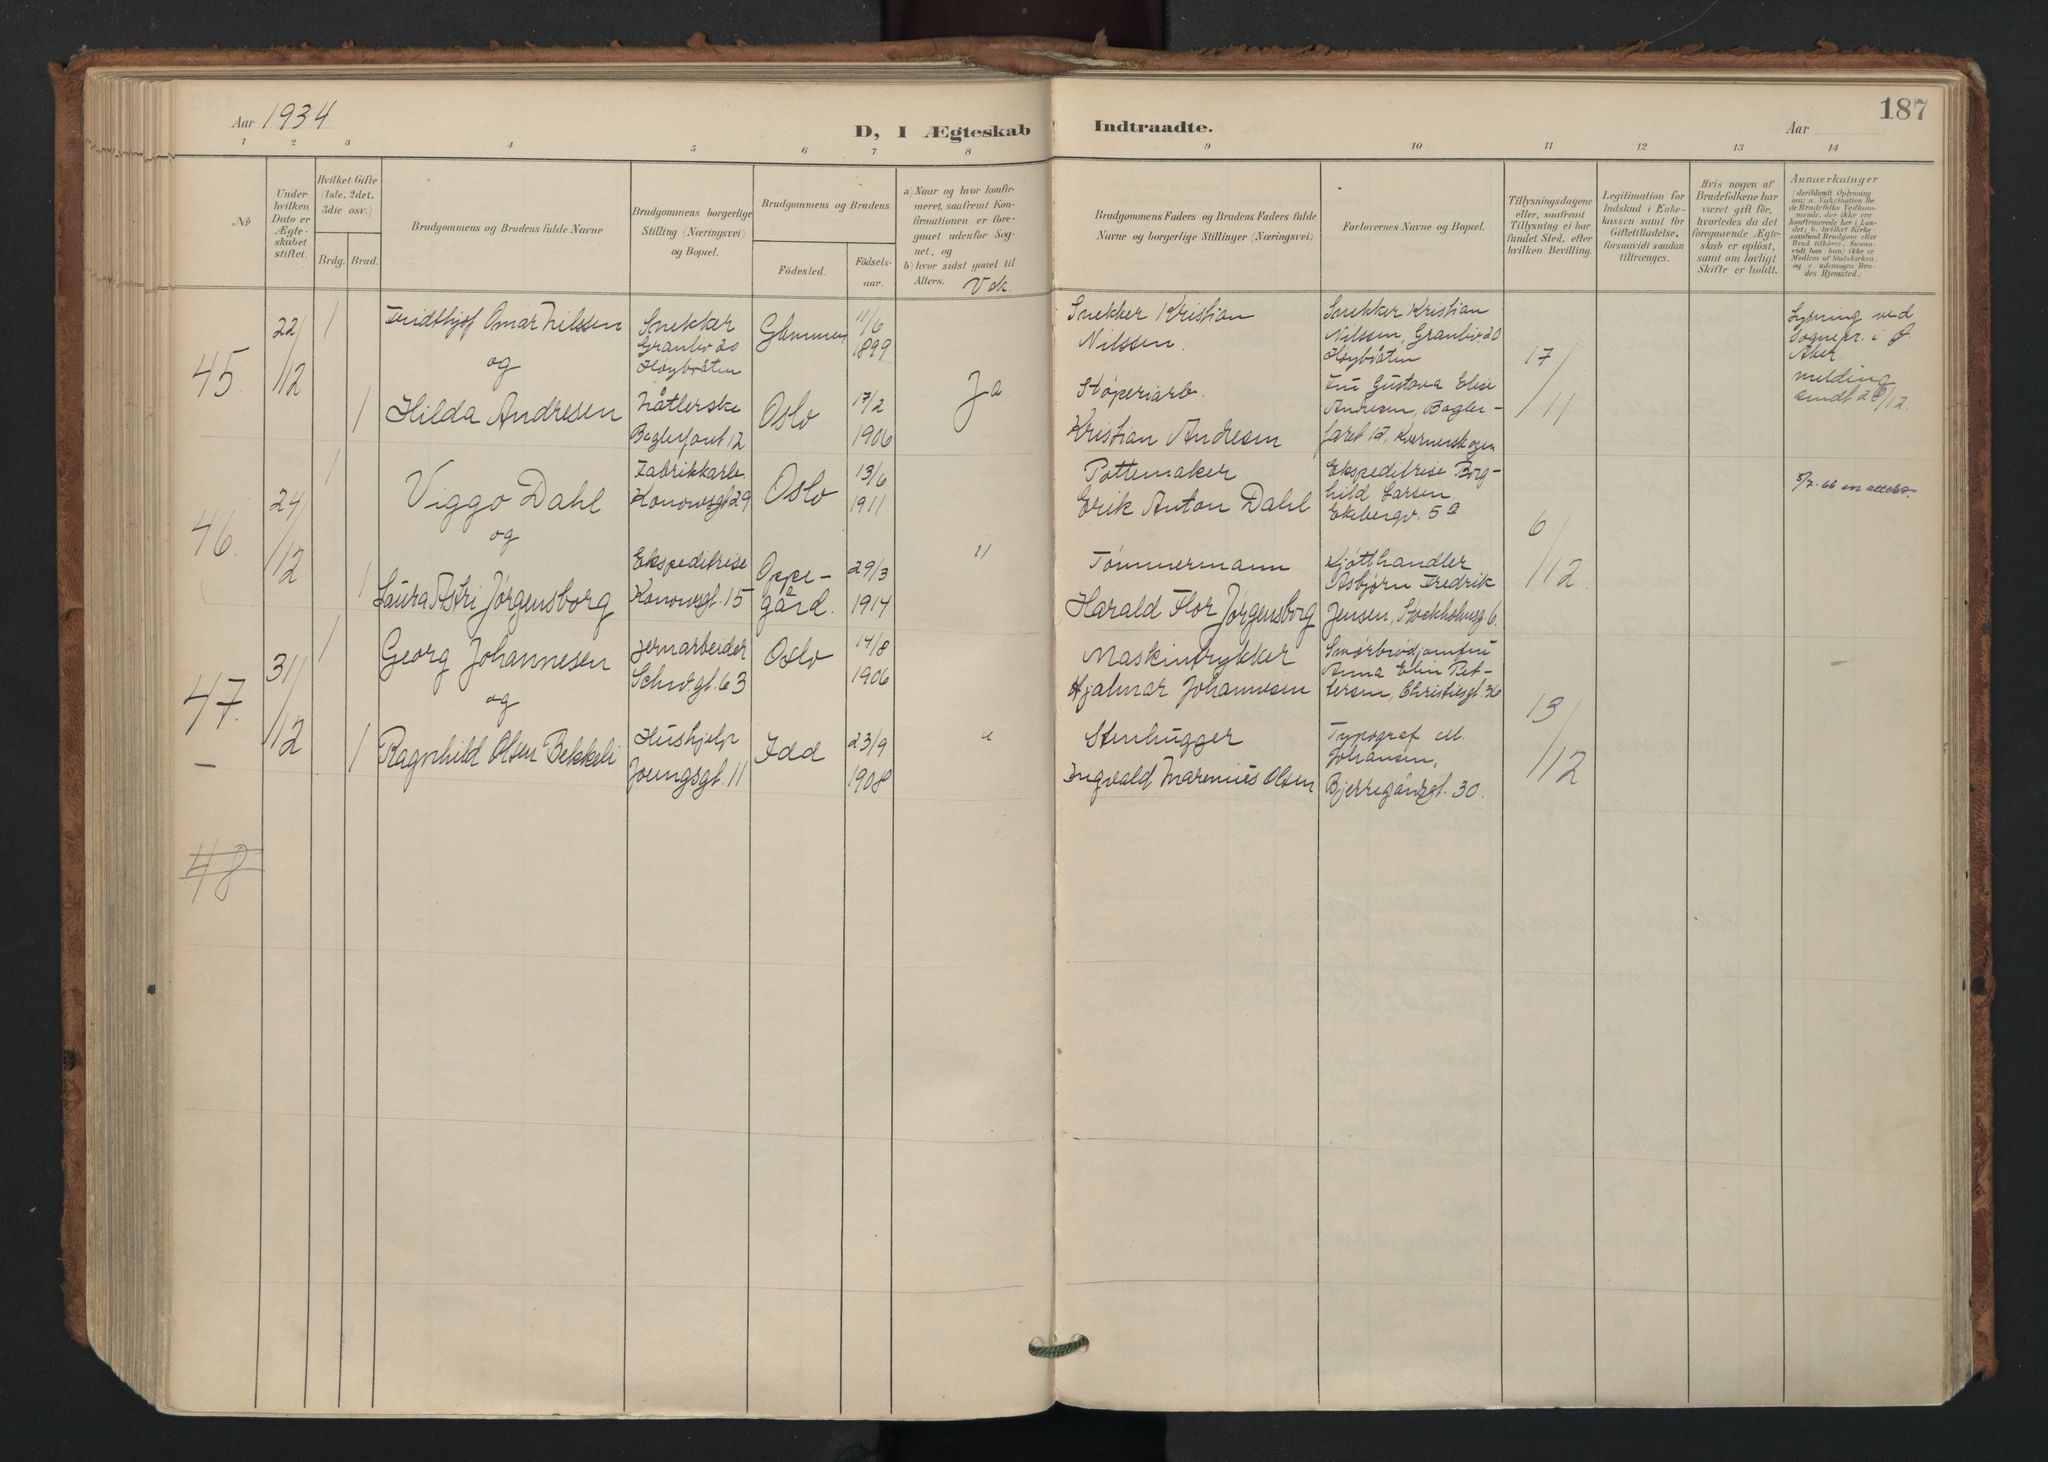 Aar 1934
D, I Ægteskab
Indtraadte.
Aar
187
1 2 3 4 5 6 7 8 9 10 11 12 13 14
No
Under hvilken Dato er Ægteskabet stiftet.
Hvilket Gifte (1ste, 2det, 3die osv.)
Brdg. Brud.
Brudgommens og Brudens fulde Navne
Brudgommens borgerlige Stilling (Næringsvei) og Bopæl.
Brudgommens og Brudens
Fødested.
Fødselsaar.
a) Naar og hvor konfirmeret, saafremt Konfirmationen er foregaaet udenfor Sognet, og
b) hvor sidst gaaet til Alters.
Vak.
Brudgommens Faders og Brudens Faders fulde Navne og borgerlige Stillinger (Næringsvei)
Forlovernes Navne og Bopæl.
Tillysningsdagene eller, saafremt Tillysning ei har fundet Sted, efter hvilken Bevilling.
Legitimation for Indskud i Enkekassen samt for Giftetilladelse, forsaavidt saadan tiltrænges.
Hvis nogen af Brudefolkene har været gift før, hvorledes da det foregaaende Ægteskab er opløst, samt om lovligt Skifte er holdt.
Anmærkninger
45. 22/12
1
Fridthjof Omar Nilssen
og
1 Hilda Andresen
Snekker
Granliv 20
Høybråten
Glemmen
11/6
1899
Båtlerfaret 12
Oslo
17/2
1906
Ja
Snekker Kristian
Nilssen.
Støperiarb.
Kristian Andresen
Snekker Kristian
Nilssen, Granliv 20
Høybråten
Fru Gustava Elise
Andresen, Bagler-
faret 12, Kværnerskogen
17/11
Lysning ved
Sognepr. i Ø.
Aker
melding
sendt 28/12.
46. 24/12
1
Viggo Dahl
og
1 Laura Astri Jørgensborg
Fabrikkarb.
Konowsgt 29
Oslo
13/6
1911
Ekspeditrise
Konowsgt. 15
Oppe-
gård.
29/3
1914
"
Pottemaker
Erik Anton Dahl
Tømmermann
Harald Flor Jørgensborg
Ekspeditrise Borg-
hild Larsen,
Ekebergv. 5a
Kjøtthandler
Asbjørn Fredrik
Jensen, Stockholmsg 6.
6/12
5/7. 66 en attest.
47. 31/12
1
Georg Johannesen
og
1 Ragnhild Olsen Bekkeli
Jernarbeider
Schv.gt. 63
Oslo
14/8
1906
Hushjelp
Youngsgt. 11
Idd
23/9
1908
"
Maskintrykker
Hjalmar Johannesen
Stenhugger
Ingvald Marenius Olsen
Smørbrødjomfru
Anna Elin Pet-
tersen, Christiesgt. 36
Typograf M.
Johansen,
Bjerregårdsgt. 30.
13/12
48